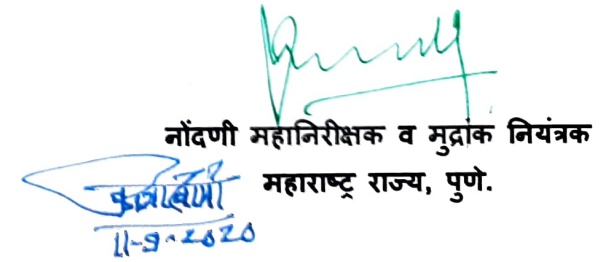 नोंदणी महानिरीक्षक व मुद्रांक नियंत्रक
महाराष्ट्र राज्य, पुणे.
11-9-2020